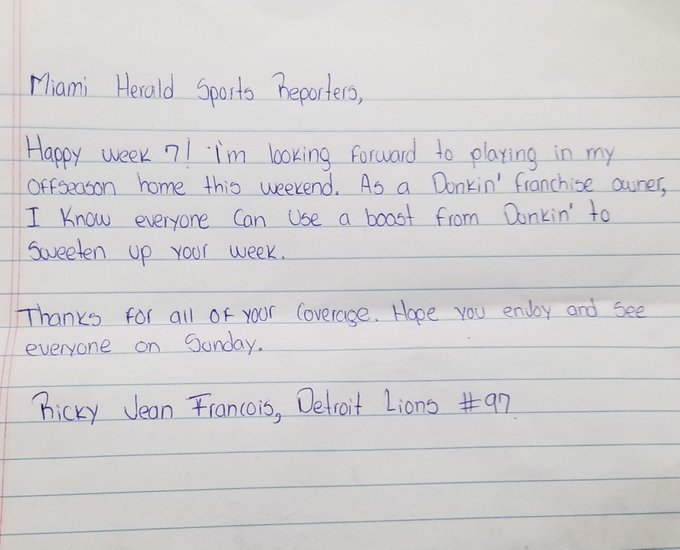 Miami Herald Sports Reporters,
Happy week 7! I'm looking forward to playing in my
offseason home this weekend. As a Dunkin' franchise owner,
I know everyone can use a boost from Dunkin' to
sweeten up your week.
Thanks for all of your coverage. Hope you enjoy and see
everyone on Sunday.
Ricky Jean Francois, Detroit Lions #97